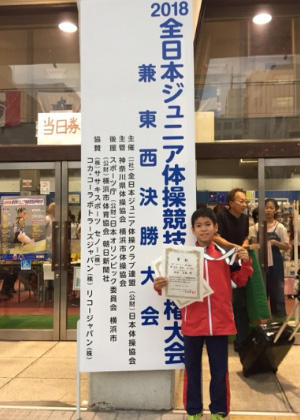 2018
全日本ジュニア体操競技
権大会
兼 東西決勝大会
主催 (一社)全日本ジュニア体操クラブ連盟 (公財)日本体操協会
主管 神奈川県体操協会 横浜市体操協会
後援 スポーツ庁 (公財)日本オリンピック委員会 横浜市
(公財)横浜市体育協会 朝日新聞社
協賛 (株)ササキスポーツ セノー(株)
コカ・コーラボトラーズジャパン(株) リコージャパン(株)
当日券